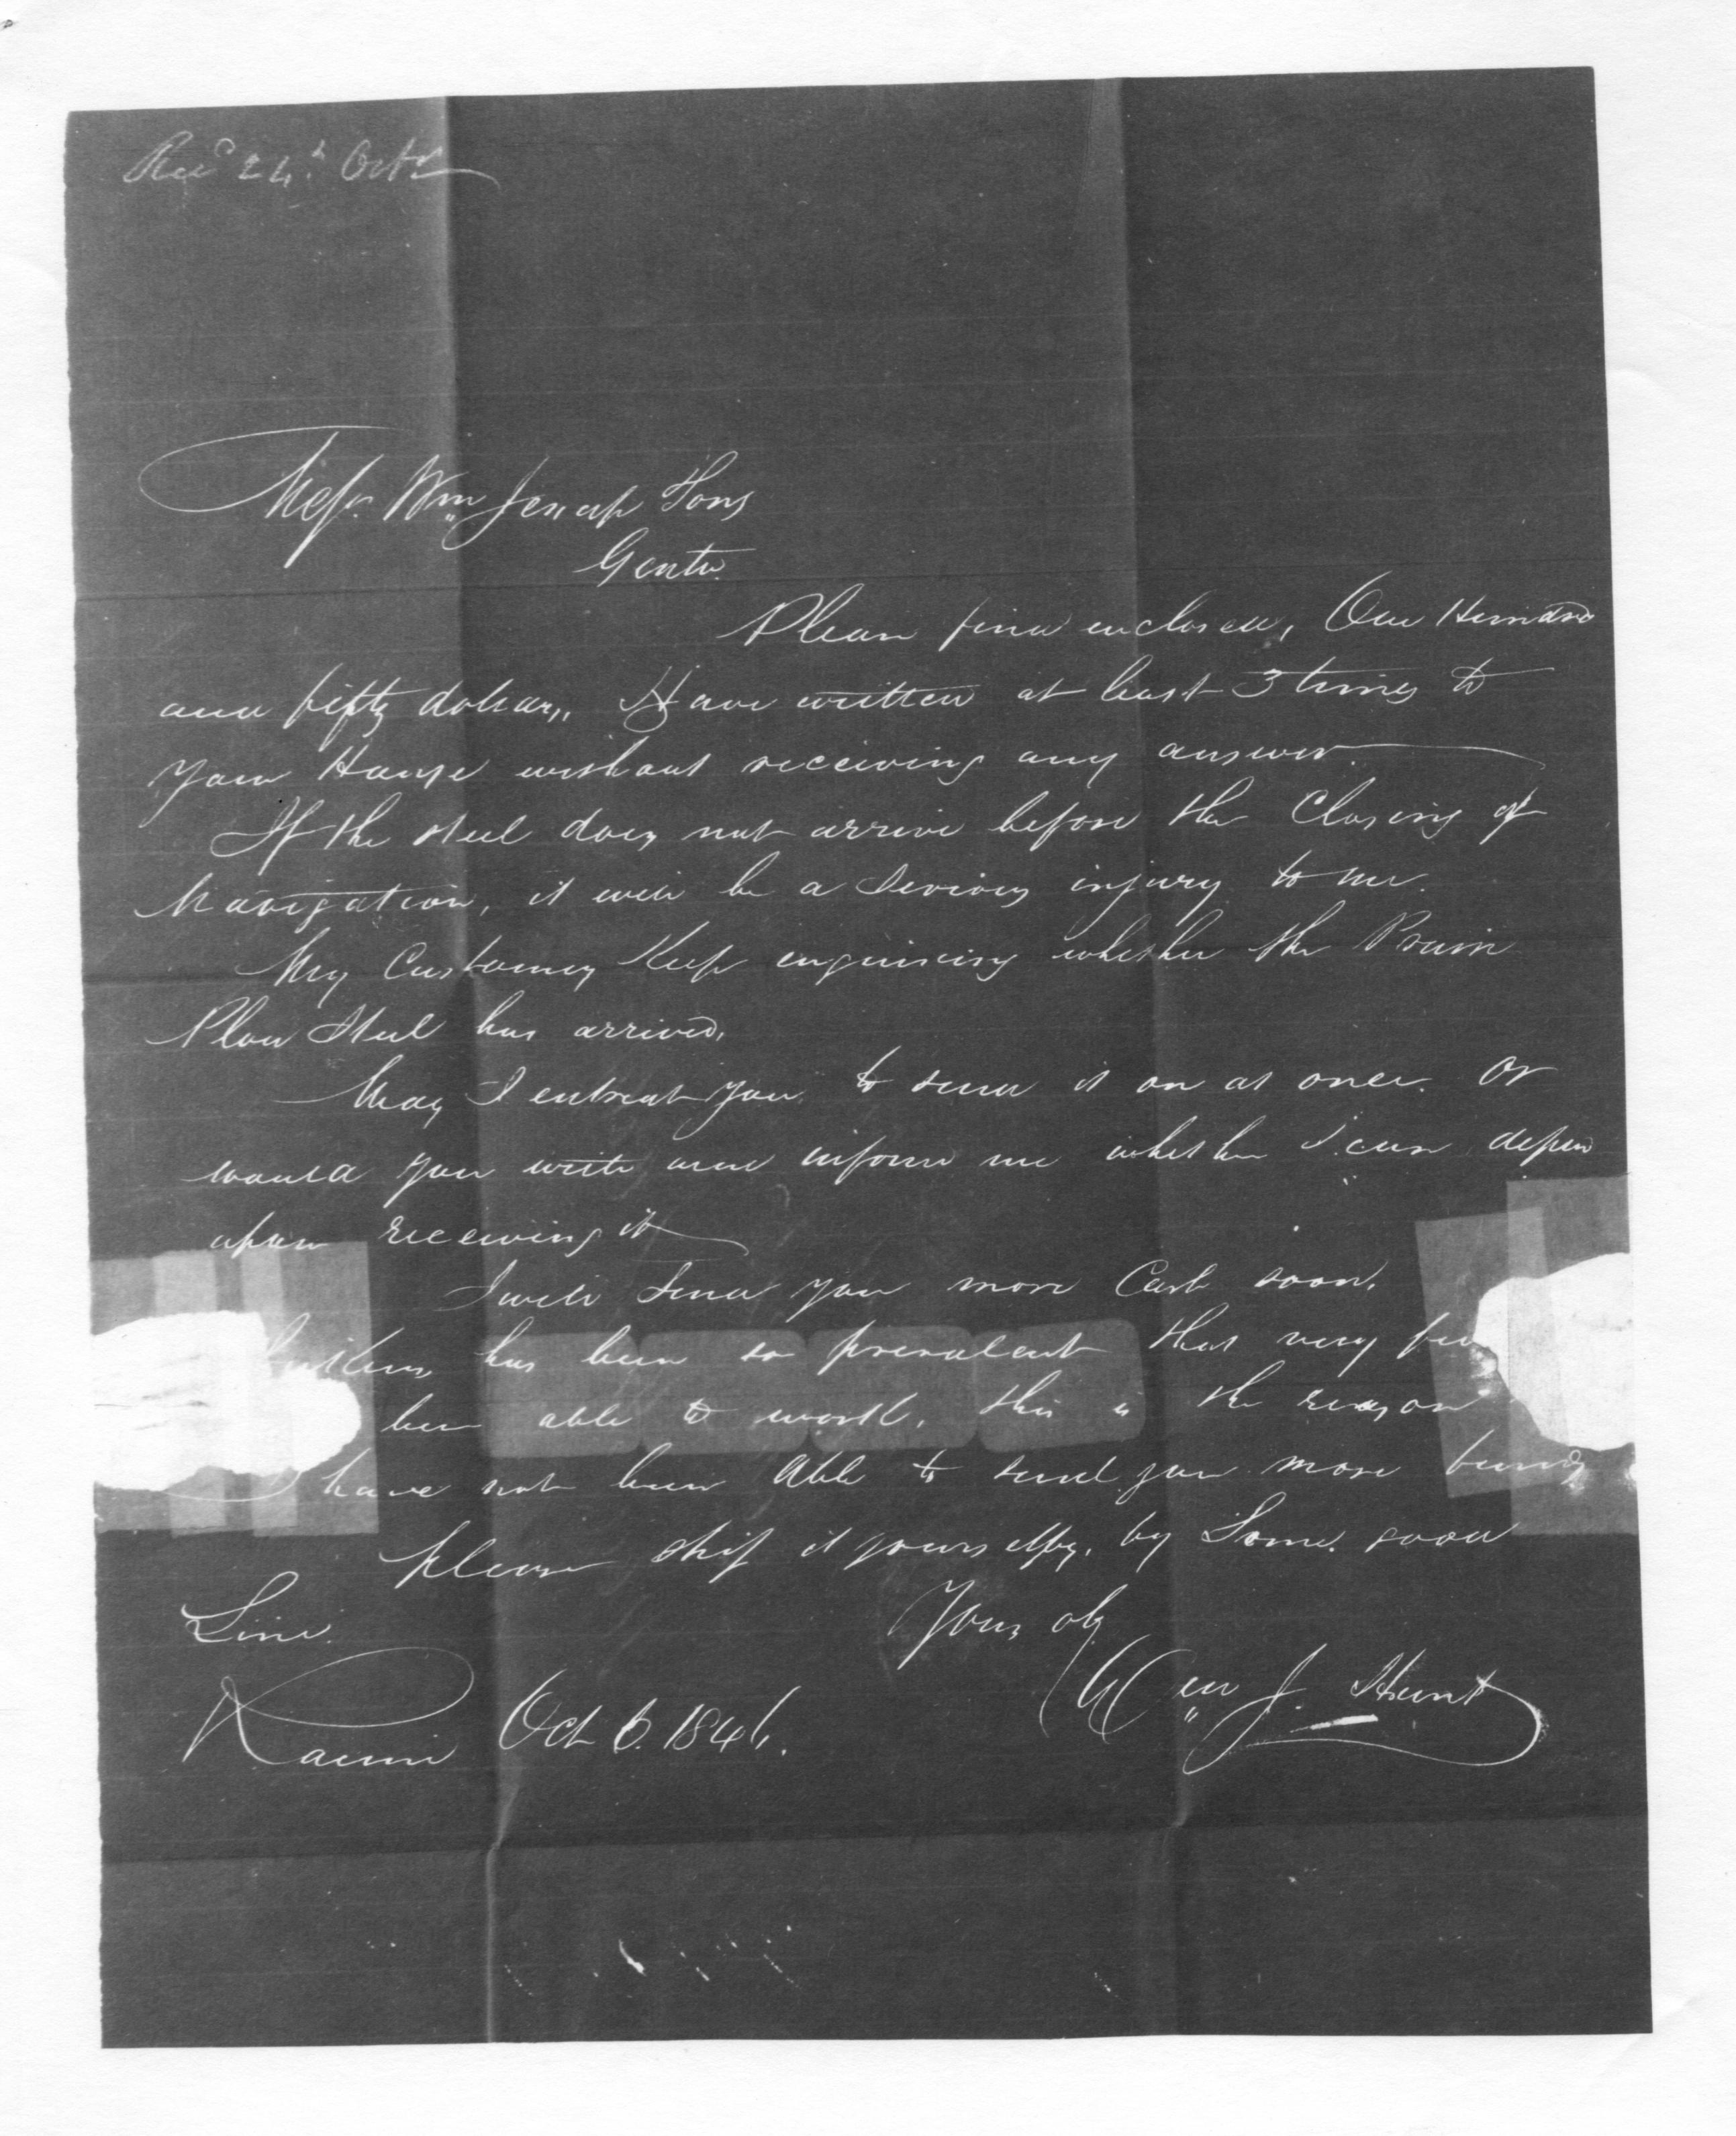 Rec^d 24^h Octr
Messrs. Wm Jessop Sons
Gents.
Please find enclosed, One Hundred
and fifty dollars, Have written at least 3 times to
your House without receiving any answer.
If the steel does not arrive before the Closing of
Navigation, it will be a Serious injury to me.
My Customers Keep enquiring whether the Prairie
Plow Steel has arrived.
May I entreat you to send it on at once. Or
would you write and inform me whether I can depend
upon receiving it
I will Send you more Cash soon.
has been so prevalent that very few
been able to work, this is the reason
I have not been Able to send you more
please ship it yourselfs, by Some good
Line.
Yours ob
Wm J. Hunt
Racine Oct 6. 1846.